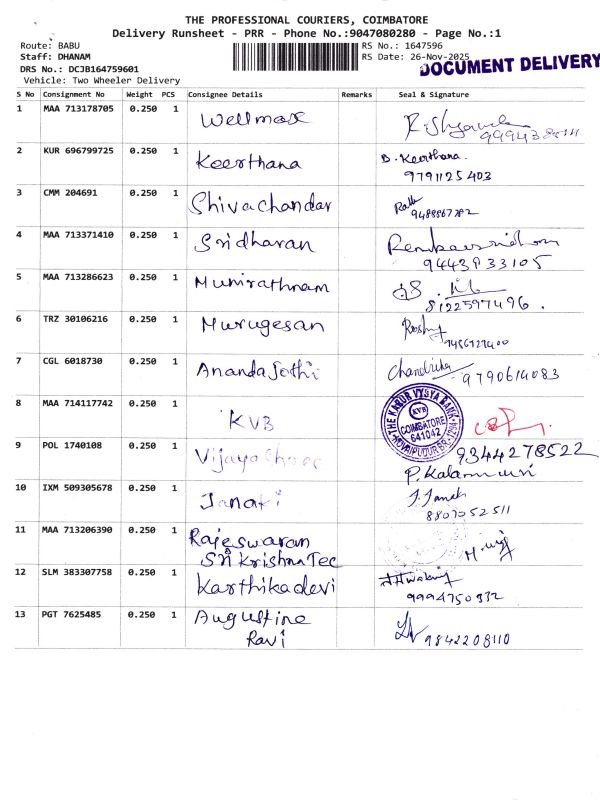 THE PROFESSIONAL COURIERS, COIMBATORE
Delivery Runsheet - PRR - Phone No.:9047080280 - Page No.:1
Route: BABU RS No.: 1647596
Staff: DHANAM RS Date: 26-Nov-2025
DOCUMENT DELIVERY
DRS No.: DCJB164759601
Vehicle: Two Wheeler Delivery
S No Consignment No Weight PCS Consignee Details Remarks Seal & Signature
1 MAA 713178705 0.250 1 Wellmax
2 KUR 696799725 0.250 1 Keerthana D. Keerthana.
9791125403
3 CMM 204691 0.250 1 Shivachandar
9488867782
4 MAA 713371410 0.250 1 Sridharan
9443833105
5 MAA 713286623 0.250 1 Munirathnam
8122597496.
6 TRZ 30106216 0.250 1 Murugesan
7 CGL 6018730 0.250 1 AnandaJothi Chandrika
9790614083
8 MAA 714117742 0.250 1 KVB
THE KARUR VYSYA BANK
KVB
COIMBATORE
641042
9 POL 1740108 0.250 1 9344278522
P. Kalaimani
10 IXM 509305678 0.250 1 Janaki J. Janaki
8807052511
11 MAA 713206390 0.250 1 Rajeswaran
Sri Krishna Tec
12 SLM 383307758 0.250 1 Karthikadevi
9994750832
13 PGT 7625485 0.250 1 Augustine
Ravi 9842208110